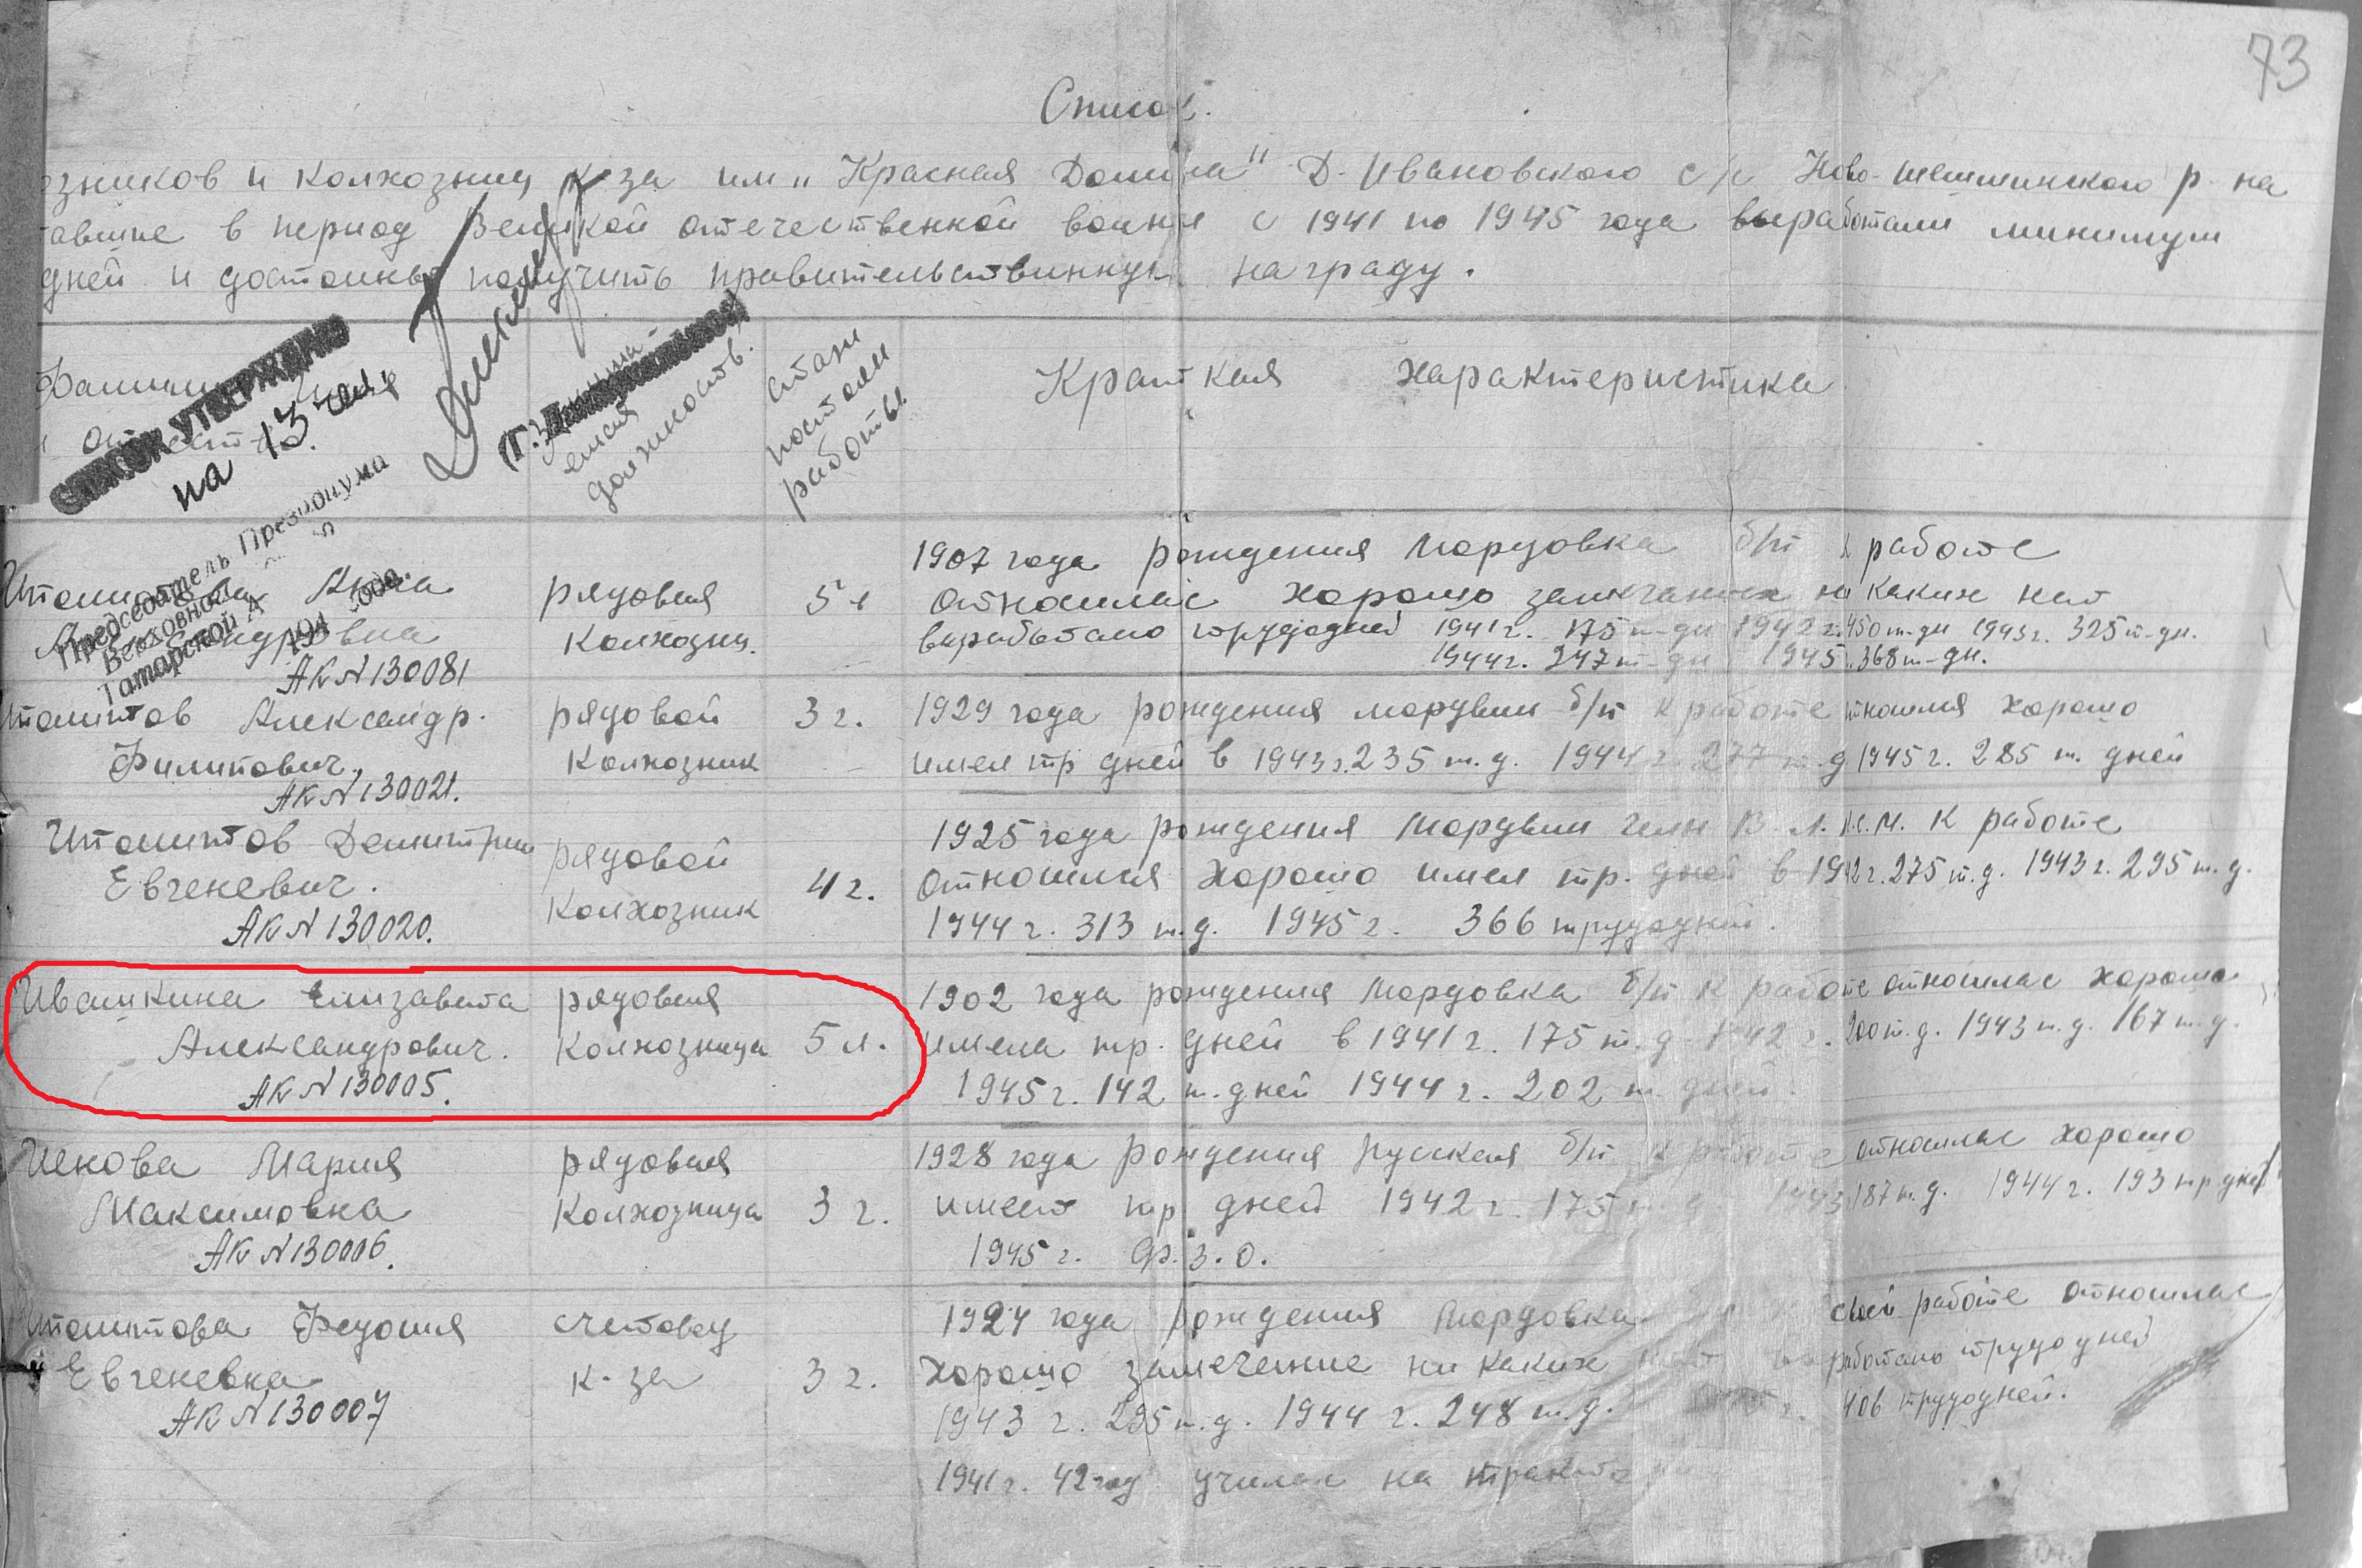 73
Список.
озников и колхозниц к-за им „Красная Долина" Д-Ивановского с/с Ново-Шешминского р-на
авшие в период Великой отечественной войны с 1941 по 1945 года выработали минимум
дней и достойны получить правительственную награду.
СПИСОК УТВЕРЖДЕНО
на 13 чел.
Председатель Президиума
Верховного
Татарской А
194 года.
Фамилия Имя
и отчество.
должность.
стаж
постоян
работы
Краткая характеристика
Ипалитова Анна
Александровна
АК N 130081
рядовая
колхозниц.
5 л
1907 года рождения Мордовка б/п к работе
относилас хорошо замечания ни каких нет
вырабытано трудодней 1941 г. 175 т-дн 1942 г. 450 т-дн 1943 г. 325 т-дн.
1944 г. 247 т-дн 1945 г. 368 т-дн.
Ипалитов Александр.
Филипович.
АК N 130021.
рядовой
колхозник
3 г.
1929 года рождения мордвин б/п к работе относился хорошо
имел тр дней в 1943 г. 235 т.д. 1944 г. 277 т.д 1945 г. 285 т. дней
Ипалитов Демитрии
Евгеневич.
АК N 130020.
рядовой
колхозник
4 г.
1925 года рождения Мордвин член В.Л.К.С.М. к работе
относился хорошо имел тр. дней в 1942 г. 275 т.д. 1943 г. 295 т.д.
1944 г. 313 т.д. 1945 г. 366 трудодней.
Ивашкина Елизавета
Александрович.
АК N 130005.
рядовая
колхозница
5 л.
1902 года рождения Мордовка б/п к работе относилас хорошо
имела тр. дней в 1941 г. 175 т.д 1942 г. 200 т.д. 1943 т.д. 167 т.д.
1945 г. 142 т. дней 1944 г. 202 т дней.
Мария
Максимовна
АК N 130006.
рядовая
колхозница
3 г.
1928 года рождения русская б/п к работе относилас хорошо
имеет тр дней 1942 г. 175 т.д. 1943 187 т.д. 1944 г. 193 тр дней
1945 г. Ф.З.О.
Ипалитова Федосия
Евгеневна
АК N 130007
счетовод
к-за
3 г.
1924 года рождения Мордовка к своей работе относилас
хорошо замечение ни каких нет выработано трудодней
1943 г. 295 т.д. 1944 г. 248 т.д. 406 трудодней.
1941 г. 42 год училас на